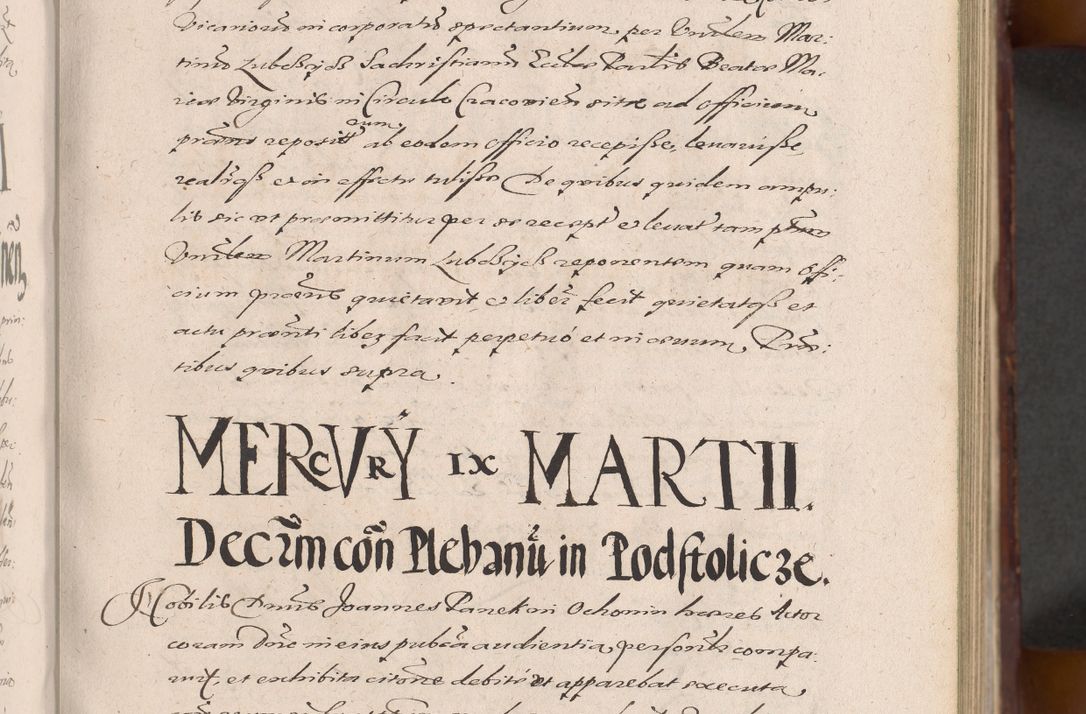 Vicariorũ in corporatis spectantium, per Vnĩlem Mar:
tinũ Lubelczyk Sachristianũ Ecclae Paulis Beatae Ma,
riae Virginis in Circulo Cracovien̄ sitae ad officium
praens reposittarum ab eodem officio recepisse, levavisse,
realiq̃s et in effectu tulisse De quibus quidem ampu:
lis sic ut praemittitur per se recept et levat tam ptum
Vnĩlem Martinum Lubelczyk reponentem quam offi:
cium praens quietavit et liber̃ fecit quietatq̃s et
actu praesñti liber̃ facit perpetuo et in aevum, Prñ:
tibus quibus supra.
MERCVRY IX MARTII.
Decrm con Plebanũ in Podstolicze.
Nobilis Dnũs Joannes Panek in Ochonin haeres Actor
coram Dño in eius pubca audientia personlr compa:
ruit, et exhibita citõne debite ut apparebat executa